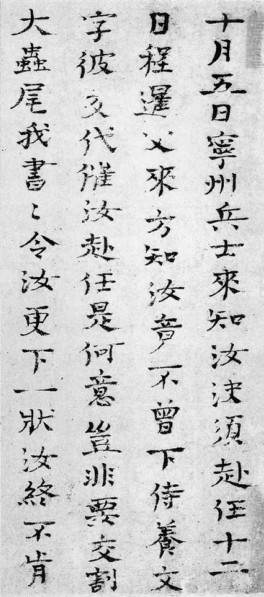 十月五日寧州兵士來知汝決須赴任十二
日程暹父來方知汝竟不曾下侍養文
字彼交代催汝赴任是何意豈非要交割
大蟲尾我書〻令汝更下一狀汝終不肯